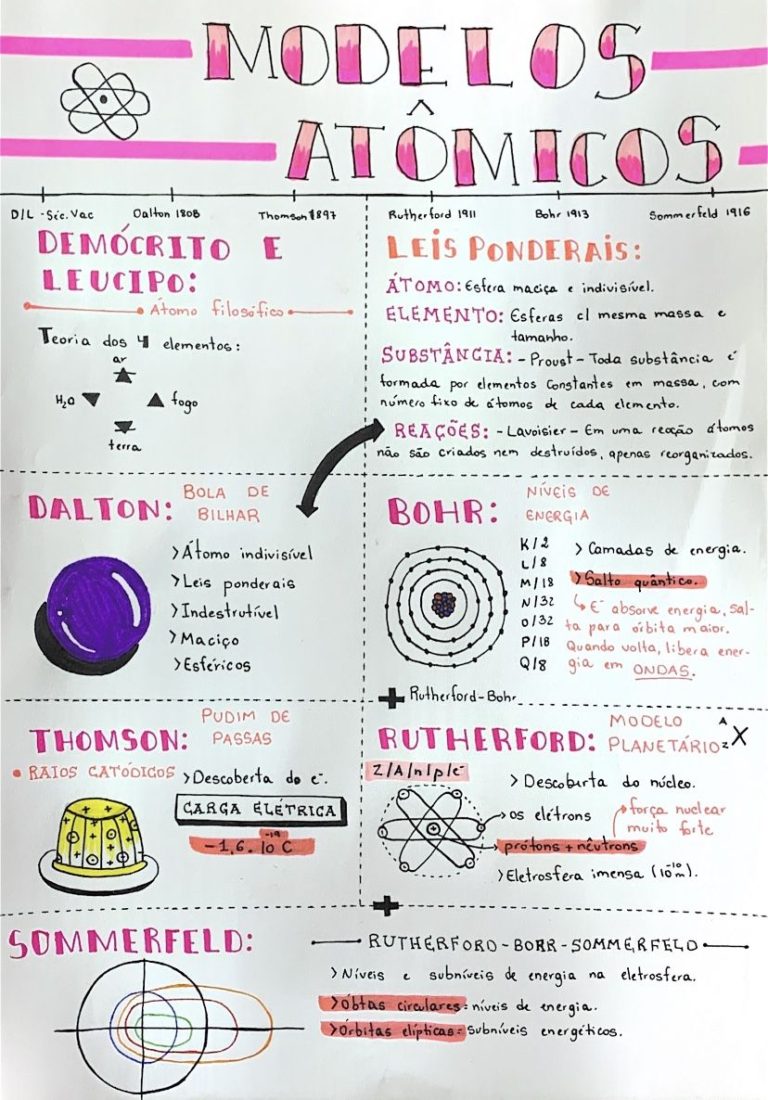 MODELOS
ATÔMICOS
D/L - Séc. Vac
Dalton 1808
Thomson 1897
Rutherford 1911
Bohr 1913
Sommerfeld 1916
DEMÓCRITO E
LEUCIPO:
Átomo filosófico
Teoria dos 4 elementos:
ar
H₂O
fogo
terra
LEIS PONDERAIS:
ÁTOMO: Esfera maciça e indivisível.
ELEMENTO: Esferas c/ mesma massa e
tamanho.
SUBSTÂNCIA: - Proust - Toda substância é
formada por elementos constantes em massa, com
número fixo de átomos de cada elemento.
REAÇÕES: - Lavoisier - Em uma reação átomos
não são criados nem destruídos, apenas reorganizados.
DALTON: BOLA DE
BILHAR
>Átomo indivisível
>Leis ponderais
>Indestrutível
>Maciço
>Esféricos
BOHR: NÍVEIS DE
ENERGIA
K/2
L/8
M/18
N/32
O/32
P/18
Q/8
>Camadas de energia.
>Salto quântico.
↳ E⁻ absorve energia, sal-
ta para órbita maior.
Quando volta, libera ener-
gia em ONDAS.
+ Rutherford-Bohr
THOMSON: PUDIM DE
PASSAS
• RAIOS CATÓDICOS
>Descoberta do e⁻.
CARGA ELÉTRICA
-1,6. 10⁻¹⁹ C
RUTHERFORD: MODELO
PLANETÁRIO
A
Z X
Z/A/n/p/e⁻
>Descoberta do núcleo.
os elétrons
força nuclear
muito forte
prótons + nêutrons
>Eletrosfera imensa (10⁻¹⁰m).
+
SOMMERFELD:
RUTHERFORD-BOHR-SOMMERFELD
>Níveis e subníveis de energia na eletrosfera.
>Óbtas circulares = níveis de energia.
>Órbitas elípticas = subníveis energéticos.